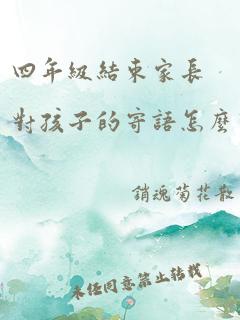 四年級結束家長
對孩子的寄語怎麼
銷魂菊花散
未經同意禁止轉載